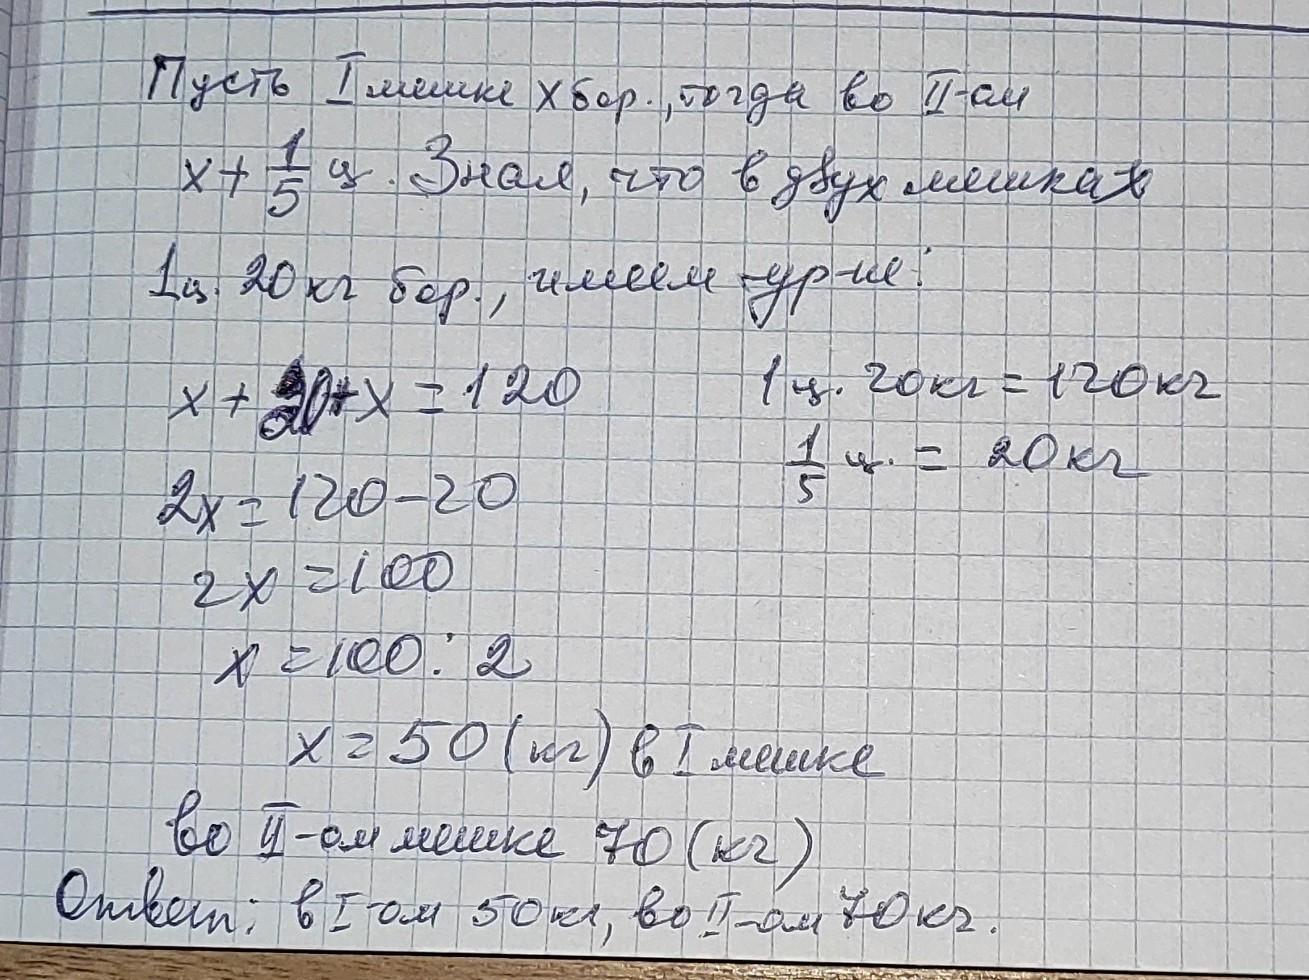 Пусть I мешке x бор., тогда во II-ом
x + 1/5 ц. Зная, что в двух мешках
1ц. 20 кг бор., имеем ур-ие:
x + 20 + x = 120
1 ц. 20кг = 120 кг
1/5 ц. = 20 кг
2x = 120 - 20
2x = 100
x = 100 : 2
x = 50 (кг) в I мешке
во II-ом мешке 70 (кг)
Ответ: в I-ом 50 кг, во II-ом 70 кг.